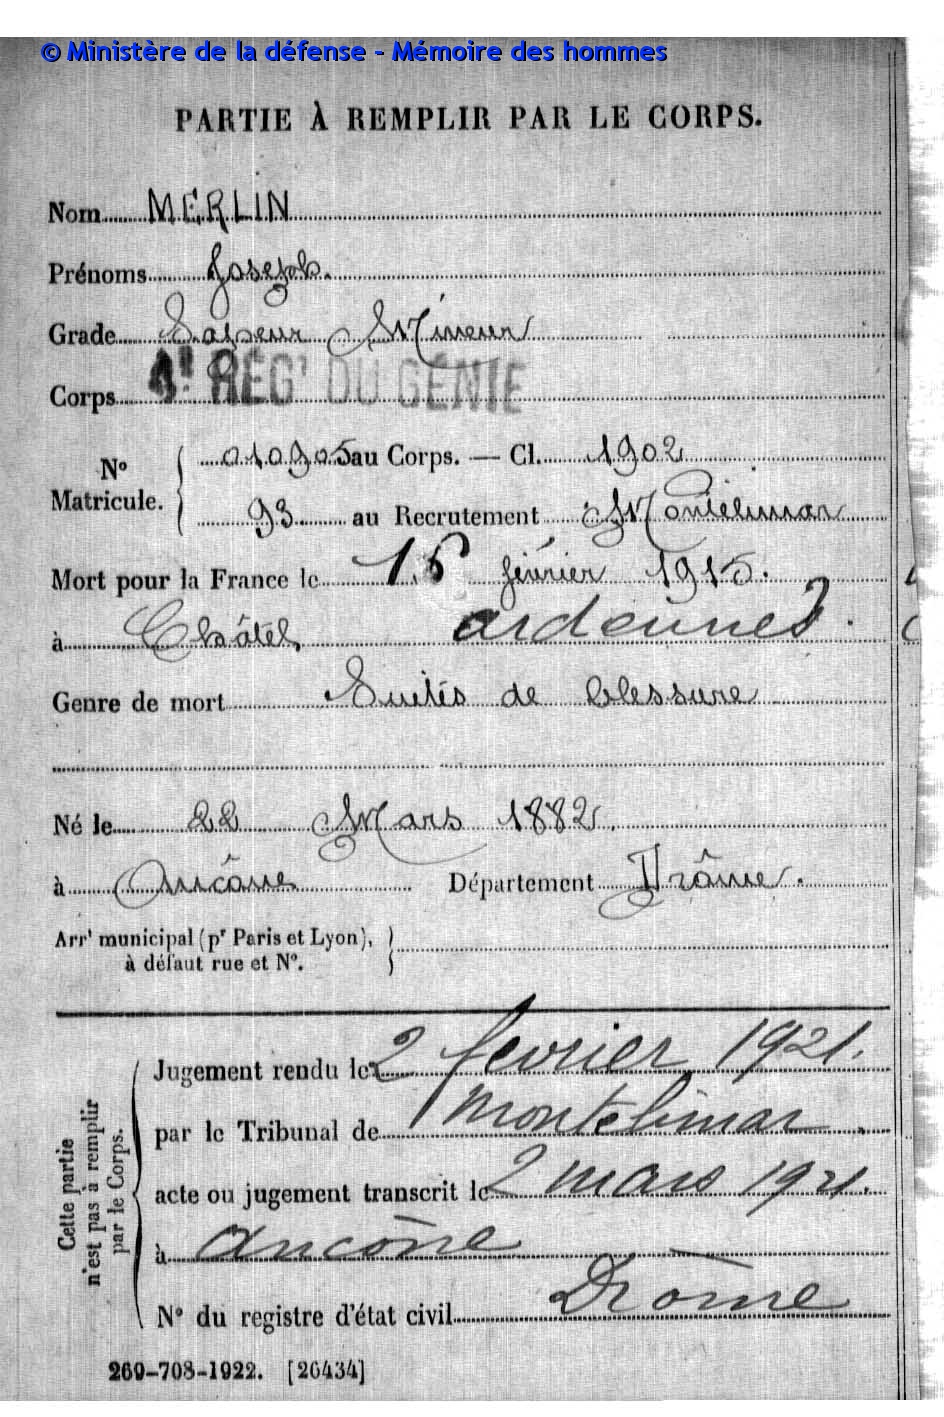 © Ministère de la défense - Mémoire des hommes
PARTIE À REMPLIR PAR LE CORPS.
Nom MERLIN
Prénoms Joseph.
Grade Sapeur Mineur
Corps 4e RÉGt DU GÉNIE
No Matricule. 010905 au Corps. — Cl. 1902
93 au Recrutement Montélimar
Mort pour la France le février 1915.
à Châtel ardennes.
Genre de mort Suites de blessure
Né le 22 Mars 1882.
à Ancône Département Drôme.
Arrt municipal (pr Paris et Lyon),
à défaut rue et No.
Cette partie
n'est pas à remplir
par le Corps.
Jugement rendu le 2 février 1921.
par le Tribunal de Montelimar.
acte ou jugement transcrit le 2 mars 1921.
à Ancône
No du registre d'état civil Drôme
269-708-1922. [26434]